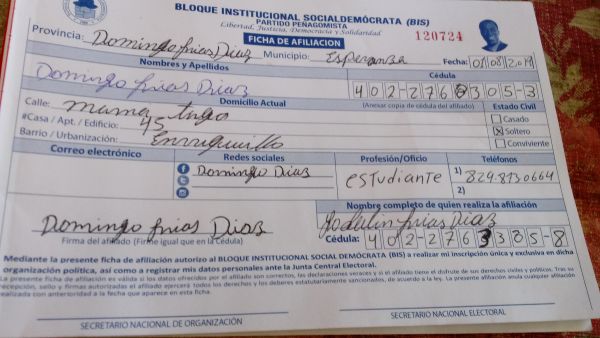 BLOQUE INSTITUCIONAL SOCIALDEMÓCRATA (BIS)
PARTIDO PEÑAGOMISTA
Libertad, Justicia, Democracia y Solidaridad
FICHA DE AFILIACIÓN
120724
Provincia: Domingo frias Diaz Municipio: Esperanza Fecha: 01/08/2019
Nombres y Apellidos Cédula
Domingo frias Diaz 402-2760305-3
Domicilio Actual (Anexar copia de cédula del afiliado) Estado Civil
Calle: mama tingo Casado
#Casa / Apt. / Edificio: 45 X Soltero
Barrio / Urbanización: Enriquillo Conviviente
Correo electrónico Redes sociales Profesión/Oficio Teléfonos
Domingo Diaz estudiante 1) 829-8730664
2)
Nombre completo de quien realiza la afiliación
Domingo frias Diaz frias Diaz
Firma del afiliado (Firme igual que en la Cédula) Cédula: 402-2763385-8
Mediante la presente ficha de afiliación autorizo al BLOQUE INSTITUCIONAL SOCIAL DEMÓCRATA (BIS) a realizar mi inscripción única y exclusiva en dicha
organización política, así como a registrar mis datos personales ante la Junta Central Electoral.
La presente ficha de afiliación es válida si los datos ofrecidos por el afiliado son correctos, las declaraciones veraces y si el afiliado tiene el disfrute de sus derechos civiles y políticos. Tras su
recepción, sello y firmas autorizadas el afiliado ejercerá todos los derechos y los deberes estatutariamente sancionados, de acuerdo a la ley. La presente afiliación anula cualquier afiliación
realizada con anterioridad a la fecha que aparece en esta ficha.
SECRETARIO NACIONAL DE ORGANIZACIÓN SECRETARIO NACIONAL ELECTORAL